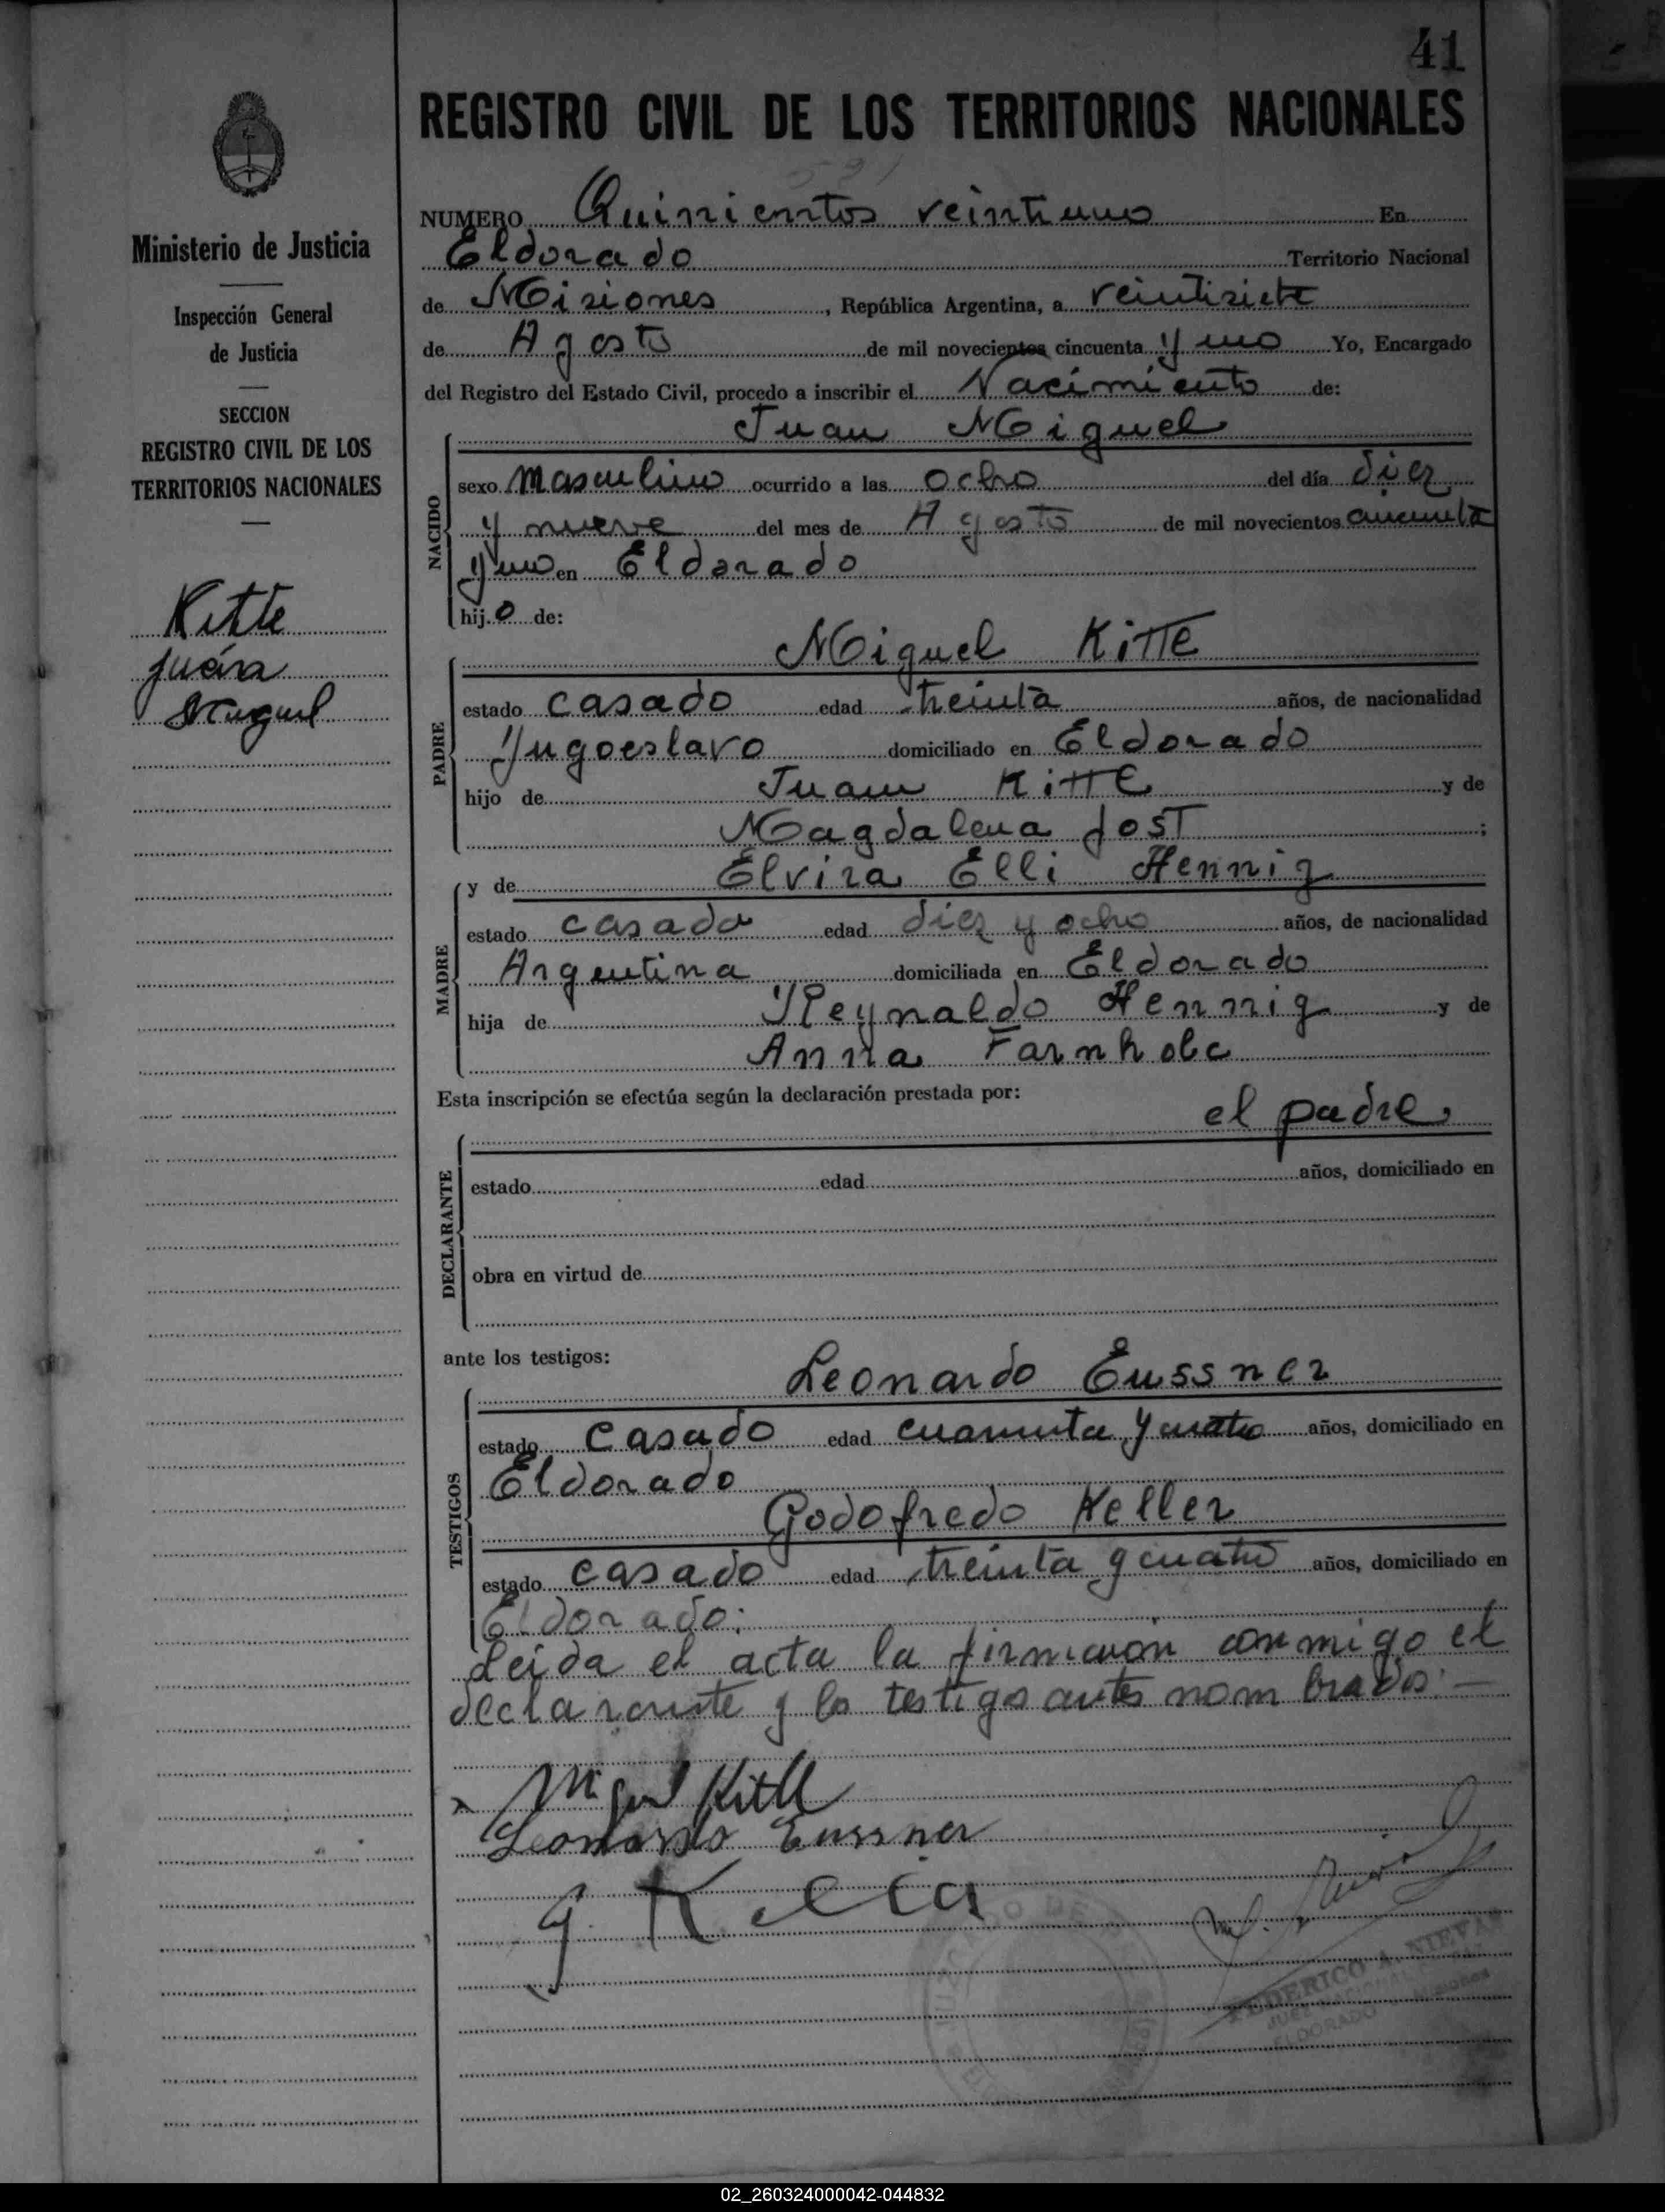 41
REGISTRO CIVIL DE LOS TERRITORIOS NACIONALES
Ministerio de Justicia
Inspección General
de Justicia
SECCION
REGISTRO CIVIL DE LOS
TERRITORIOS NACIONALES
Kitte
Juán
Miguel
521
NUMERO Quinientos veintiuno En
Eldorado Territorio Nacional
de Misiones, República Argentina, a veintisiete
de Agosto de mil novecientos cincuenta y uno Yo, Encargado
del Registro del Estado Civil, procedo a inscribir el Nacimiento de:
Juan Miguel
NACIDO
sexo masculino ocurrido a las ocho del día diez
y nueve del mes de Agosto de mil novecientos cincuenta
y uno en Eldorado
hijo de:
PADRE
Miguel Kitte
estado casado edad treinta años, de nacionalidad
Yugoeslavo domiciliado en Eldorado
hijo de Juan Kitte y de
Magdalena Jost;
MADRE
y de Elvira Elli Hennig
estado casada edad diez y ocho años, de nacionalidad
Argentina domiciliada en Eldorado
hija de Reynaldo Hennig y de
Anna Farnholc
Esta inscripción se efectúa según la declaración prestada por:
el padre
DECLARANTE
estado edad años, domiciliado en
obra en virtud de
ante los testigos:
TESTIGOS
Leonardo Eussner
estado casado edad cuarenta y cuatro años, domiciliado en
Eldorado
Godofredo Keller
estado casado edad treinta y cuatro años, domiciliado en
Eldorado:
Leida el acta la firmaron conmigo el
declarante y los testigos antes nombrados:—
Miguel Kitte
Leonardo Eussner
G. Keller
FEDERICO A. NIEVAS
ELDORADO
02_260324000042-044832